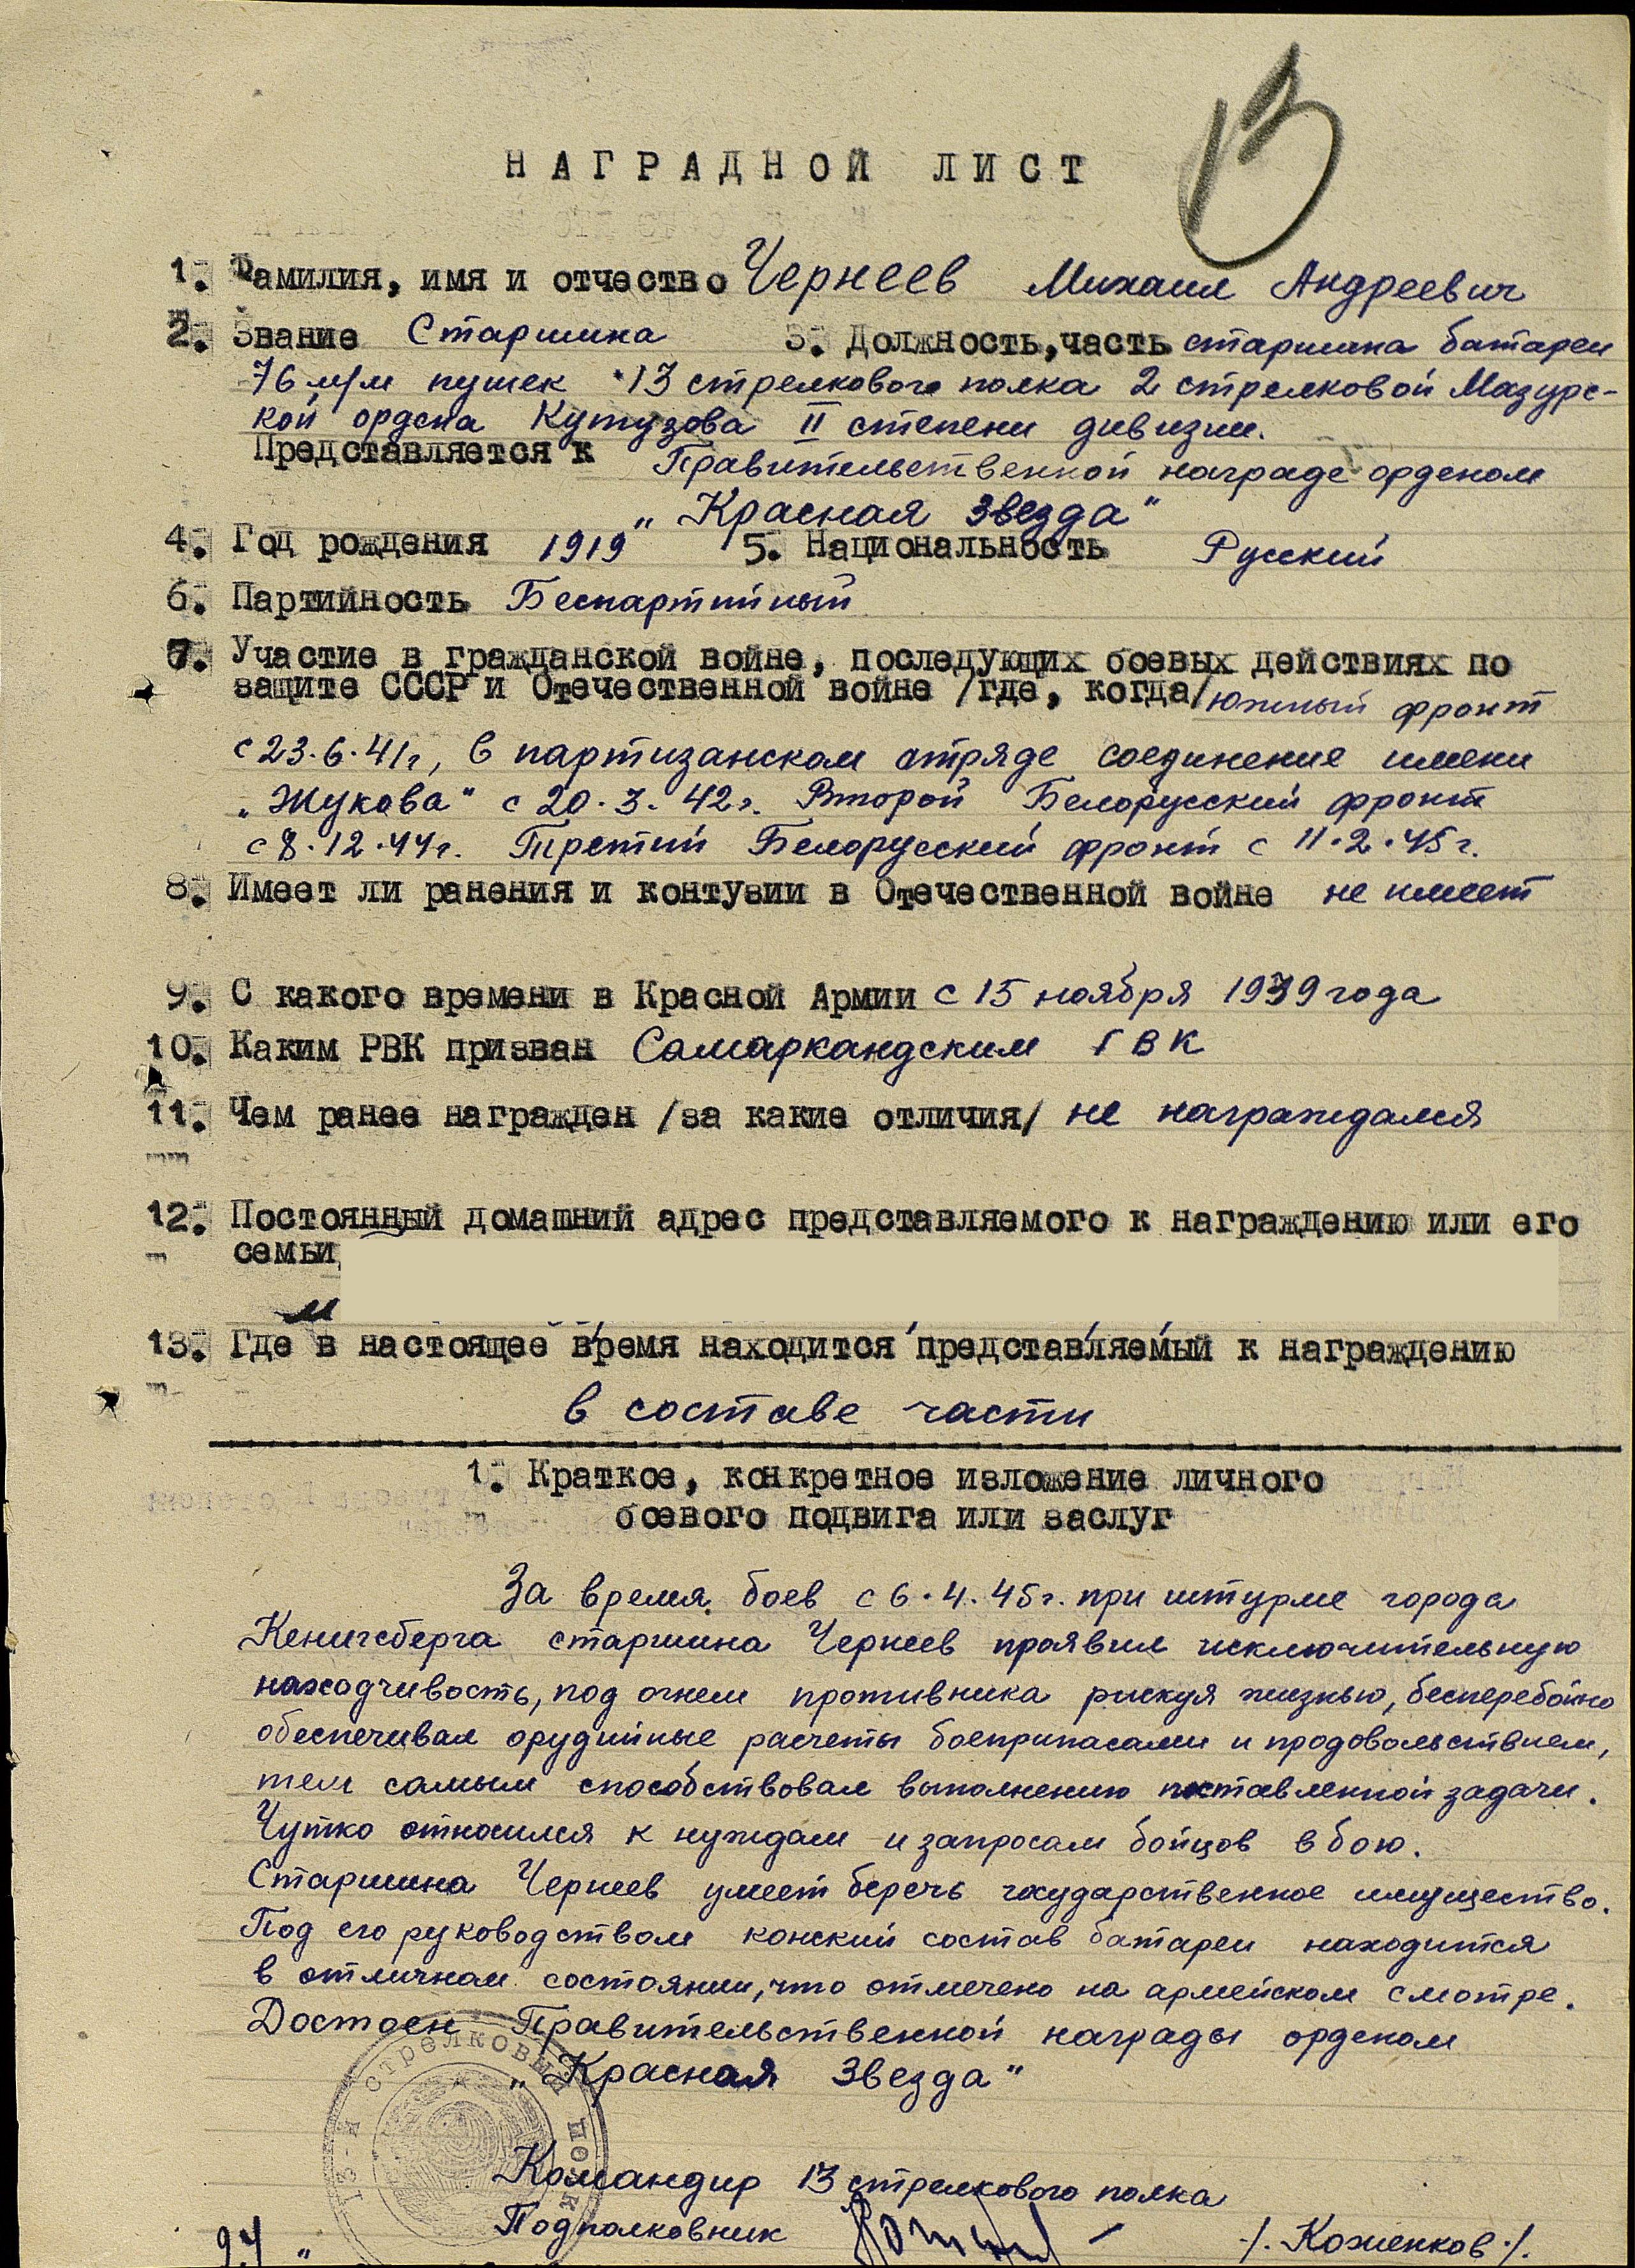 13
НАГРАДНОЙ ЛИСТ
1. Фамилия, имя и отчество Чернеев Михаил Андреевич
2. Звание Старшина 3. Должность, часть старшина батареи
76 м/м пушек 13 стрелкового полка 2 стрелковой Мазурс-
кой ордена Кутузова II степени дивизии.
Представляется к Правительственной награде орденом
„Красная звезда"
4. Год рождения 1919 5. Национальность Русский
6. Партийность Беспартийный
7. Участие в гражданской войне, последующих боевых действиях по
защите СССР и Отечественной войне /где, когда/ южный фронт
с 23.6.41г, в партизанском отряде соединение имени
„Жукова" с 20.3.42г. Второй Белорусский фронт
с 8.12.44г. Третий Белорусский фронт с 11.2.45г.
8. Имеет ли ранения и контузии в Отечественной войне не имеет
9. С какого времени в Красной Армии с 15 ноября 1939 года
10. Каким РВК призван Самаркандским ГВК
11. Чем ранее награжден /за какие отличия/ не награждался
12. Постоянный домашний адрес представляемого к награждению или его
семьи
13. Где в настоящее время находится представляемый к награждению
в составе части
1. Краткое, конкретное изложение личного
боевого подвига или заслуг
За время боев с 6.4.45г. при штурме города
Кенигсберга старшина Чернеев проявил исключительную
находчивость, под огнем противника рискуя жизнью, бесперебойно
обеспечивал орудийные расчеты боеприпасами и продовольствием,
тем самым способствовал выполнению поставленной задачи.
Чутко относился к нуждам и запросам бойцов в бою.
Старшина Чернеев умеет беречь государственное имущество.
Под его руководством конский состав батареи находится
в отличном состоянии, что отмечено на армейском смотре.
Достоен Правительственной награды орденом
„Красная Звезда"
13-й стрелковый полк
Командир 13 стрелкового полка
Подполковник /. Коженков ./.